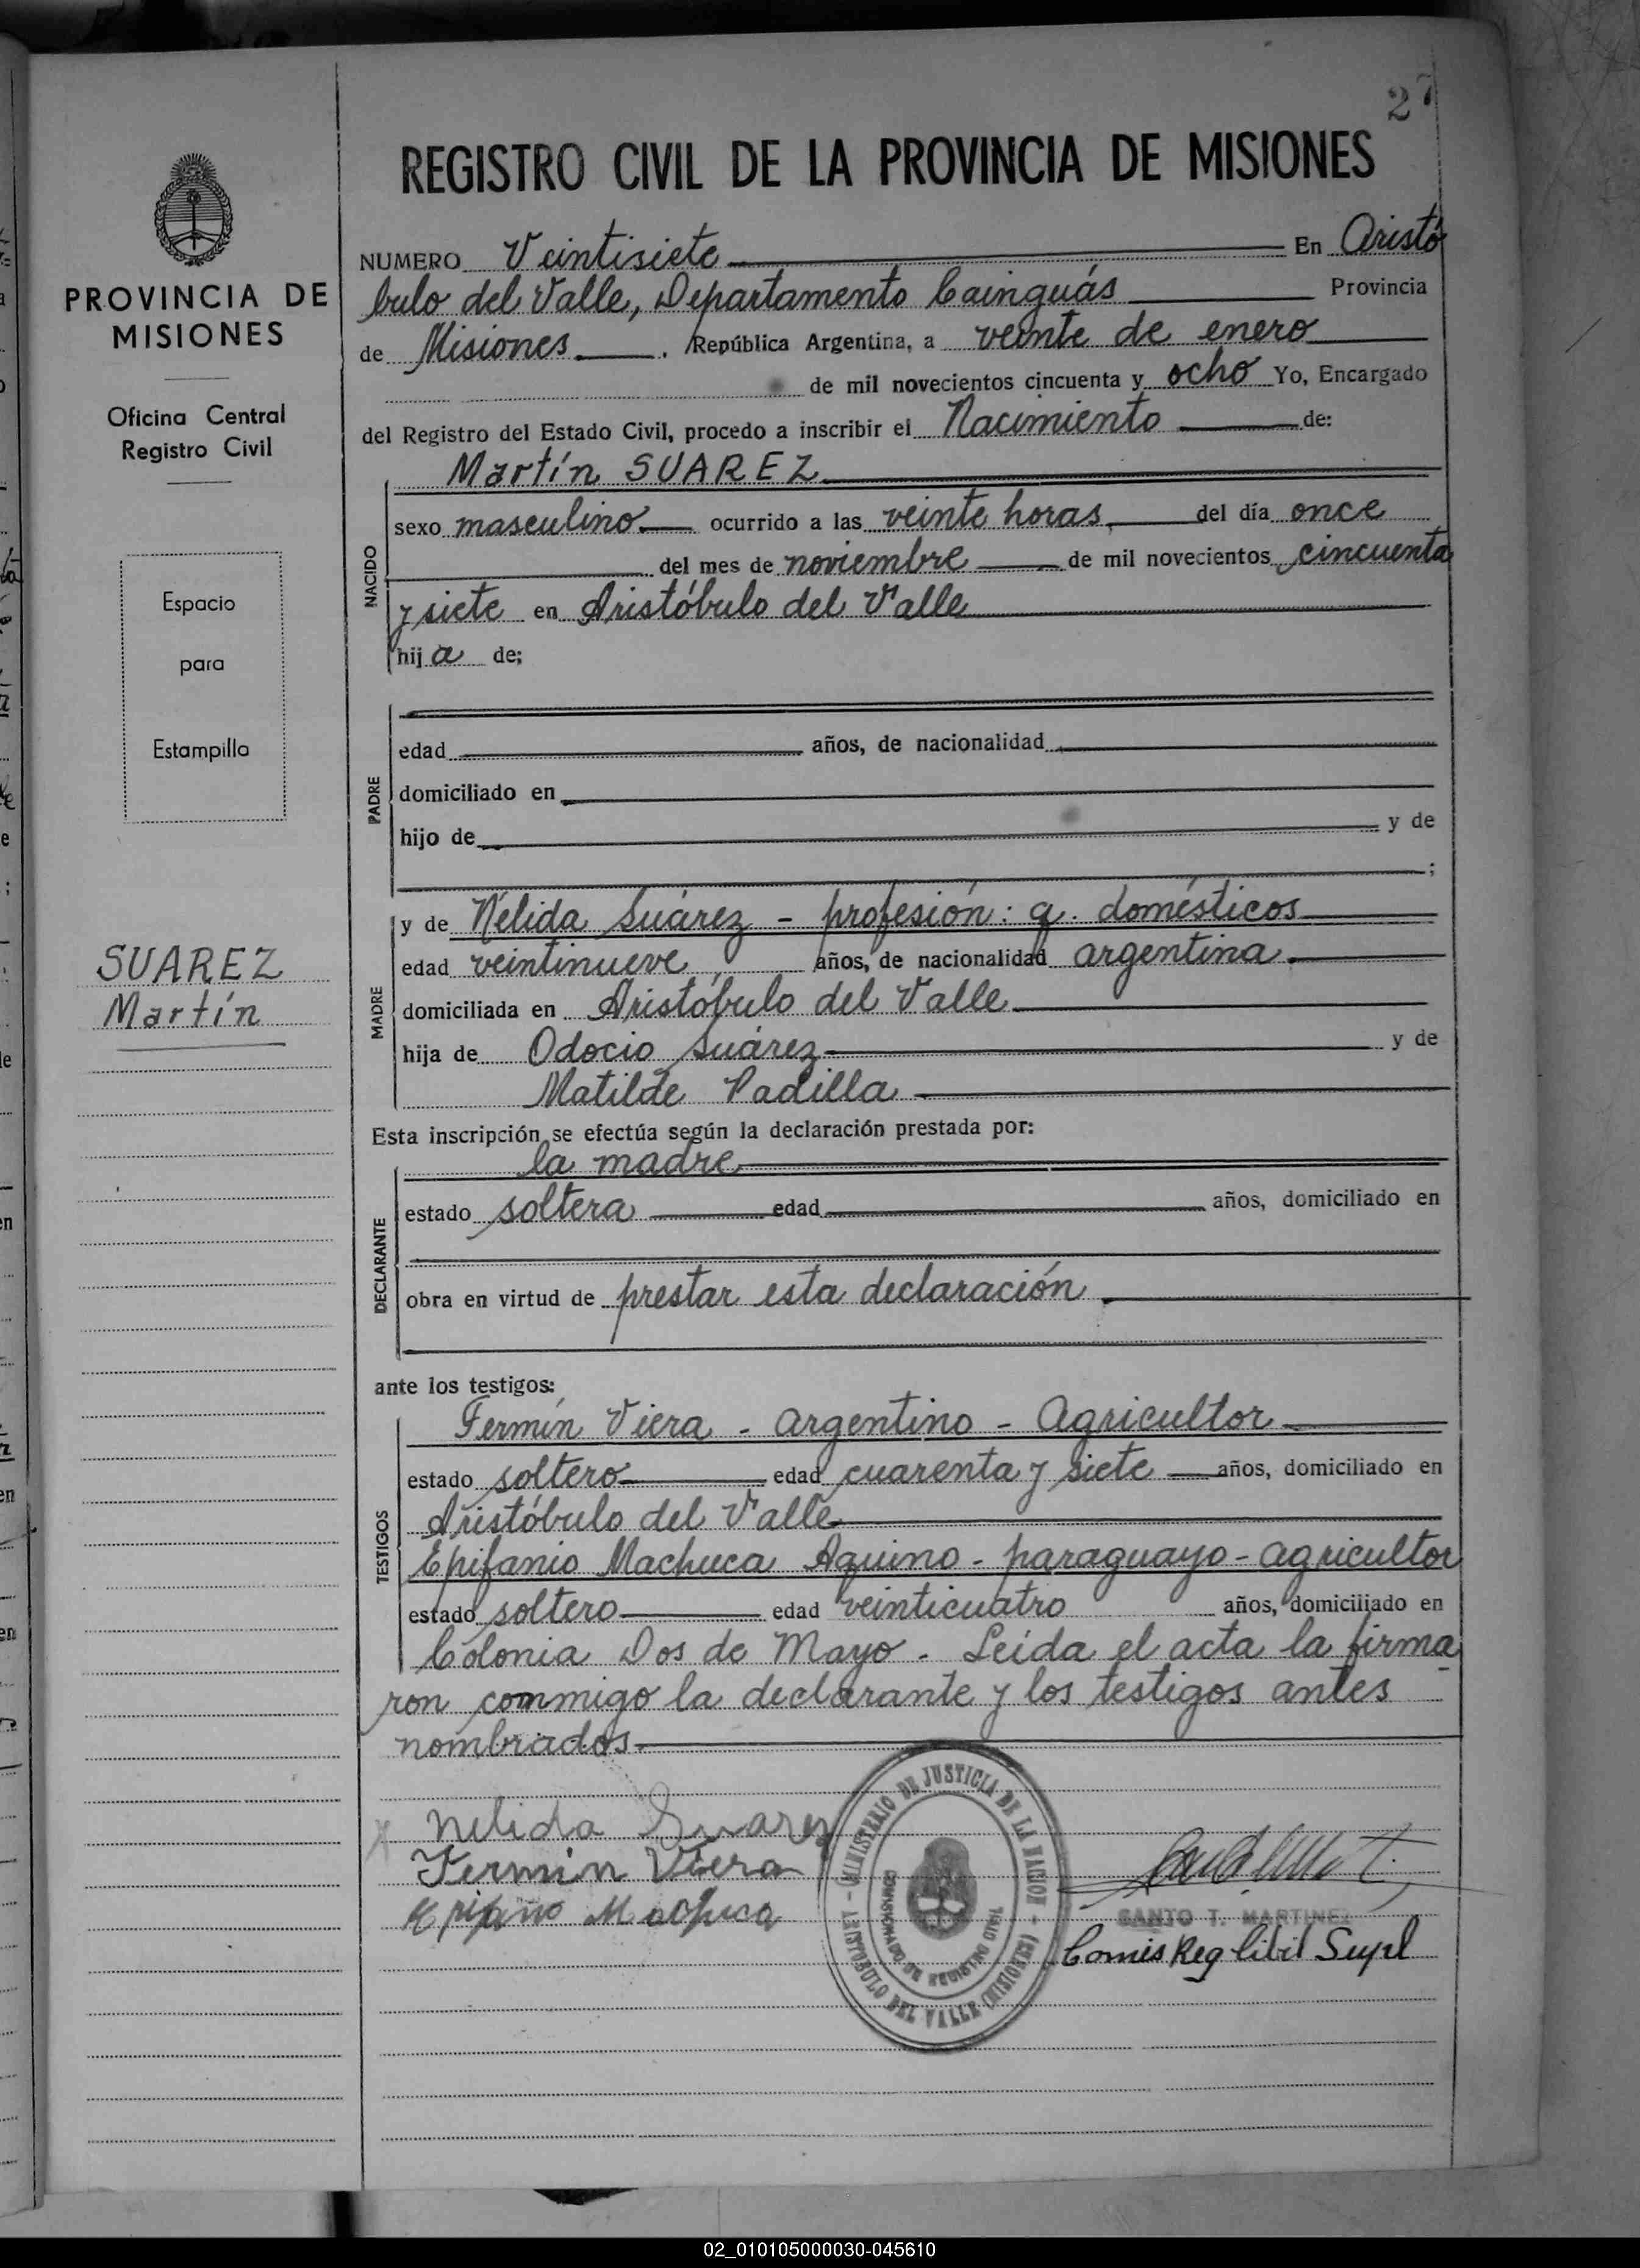 27
REGISTRO CIVIL DE LA PROVINCIA DE MISIONES
PROVINCIA DE
MISIONES
Oficina Central
Registro Civil
Espacio
para
Estampilla
SUAREZ
Martín
NUMERO Veintisiete En Aristó
bulo del Valle, Departamento Cainguás Provincia
de Misiones. República Argentina, a veinte de enero
de mil novecientos cincuenta y ocho Yo, Encargado
del Registro del Estado Civil, procedo a inscribir el Nacimiento de:
Martín SUAREZ
NACIDO
sexo masculino ocurrido a las veinte horas, del día once
del mes de noviembre de mil novecientos cincuenta
y siete en Aristóbulo del Valle
hij a de;
PADRE
edad años, de nacionalidad
domiciliado en
hijo de y de
;
MADRE
y de Nélida Suárez - profesión: q. domésticos
edad veintinueve años, de nacionalidad argentina
domiciliada en Aristóbulo del Valle
hija de Odocio Suárez y de
Matilde Padilla
Esta inscripción se efectúa según la declaración prestada por:
la madre
DECLARANTE
estado soltera edad años, domiciliado en
obra en virtud de prestar esta declaración
ante los testigos:
Fermín Viera - argentino - Agricultor
TESTIGOS
estado soltero edad cuarenta y siete años, domiciliado en
Aristóbulo del Valle
Epifanio Machuca Aquino - paraguayo - agricultor
estado soltero edad veinticuatro años, domiciliado en
Colonia Dos de Mayo. Leída el acta la firma
ron conmigo la declarante y los testigos antes
nombrados
Nelida Suarez
Fermin Viera
Epifanio Machuca
MINISTERIO DE JUSTICIA DE LA NACION
ARISTOBULO DEL VALLE (MISIONES)
COMISIONADO DE REGISTRO CIVIL
SANTO T. MARTINEZ
Comis Reg Cibil Supl
02_010105000030-045610